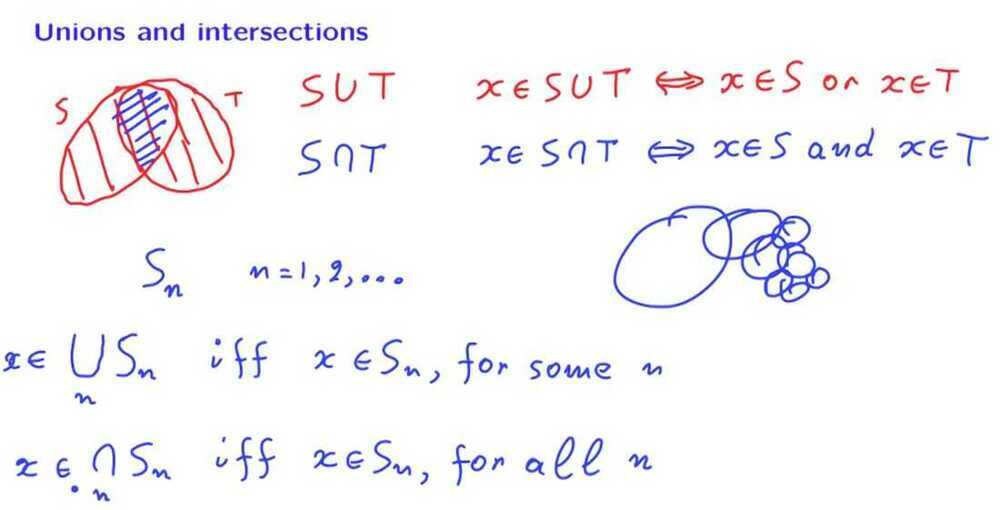 Unions and intersections
S T S∪T x∈S∪T ⇔ x∈S or x∈T
S∩T x∈S∩T ⇔ x∈S and x∈T
Sₙ n=1,2,...
x∈ ⋃ Sₙ iff x∈Sₙ, for some n
n
x∈ ∩ Sₙ iff x∈Sₙ, for all n
n